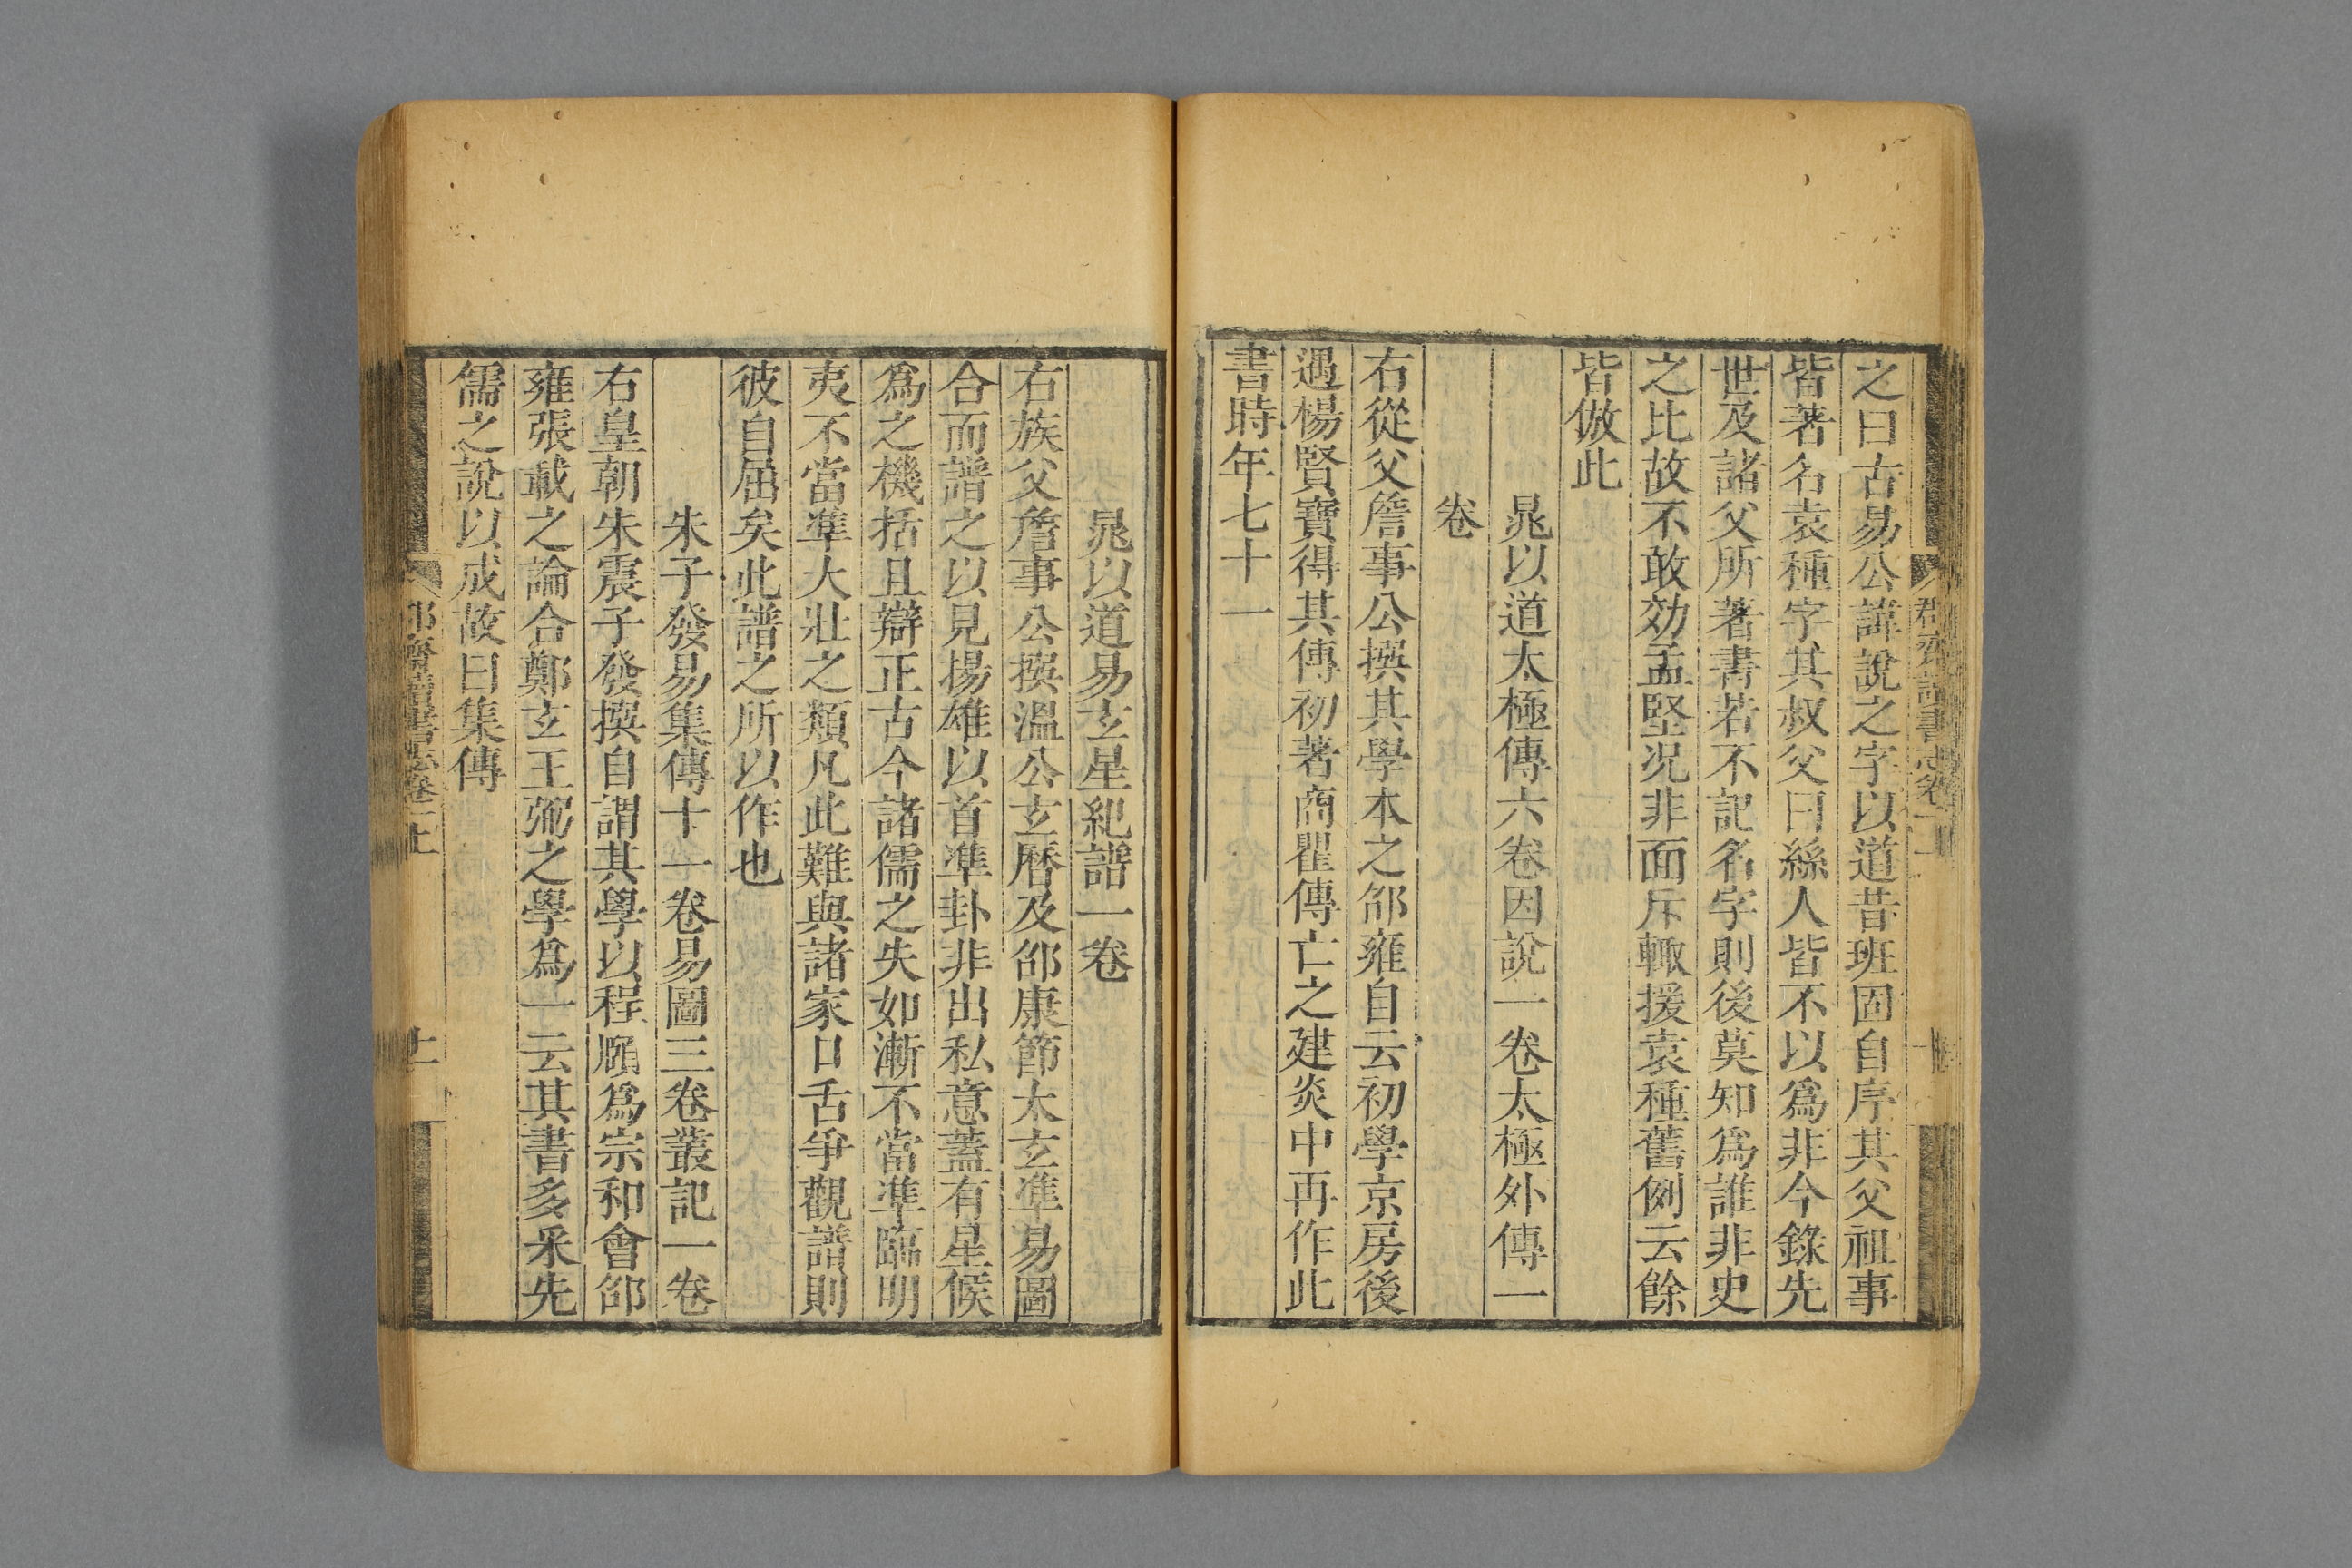 之曰古易公諱說之字以道昔班固自序其父祖事
皆著名袁種字其叔父曰絲人皆不以爲非今錄先
世及諸父所著書若不記名字則後莫知爲誰非史
之比故不敢効孟堅况非面斥輙援袁種舊例云餘
皆倣此
晁以道太極傳六卷因說一卷太極外傳一
卷
右從父詹事公撰其學本之邵雍自云初學京房後
遇楊賢寶得其傳初著商瞿傳亡之建炎中再作此
書時年七十一
晁以道易玄星紀譜一卷
右族父詹事公撰溫公玄曆及邵康節太玄準易圖
合而譜之以見揚雄以首準卦非出私意蓋有星候
爲之機括且辯正古今諸儒之失如漸不當準臨明
夷不當準大壯之類凡此難與諸家口舌爭觀譜則
彼自屈矣此譜之所以作也
朱子發易集傳十一卷易圖三卷叢記一卷
右皇朝朱震子發撰自謂其學以程頤爲宗和會邵
雍張載之論合鄭玄王弼之學爲一云其書多采先
儒之說以成故曰集傳